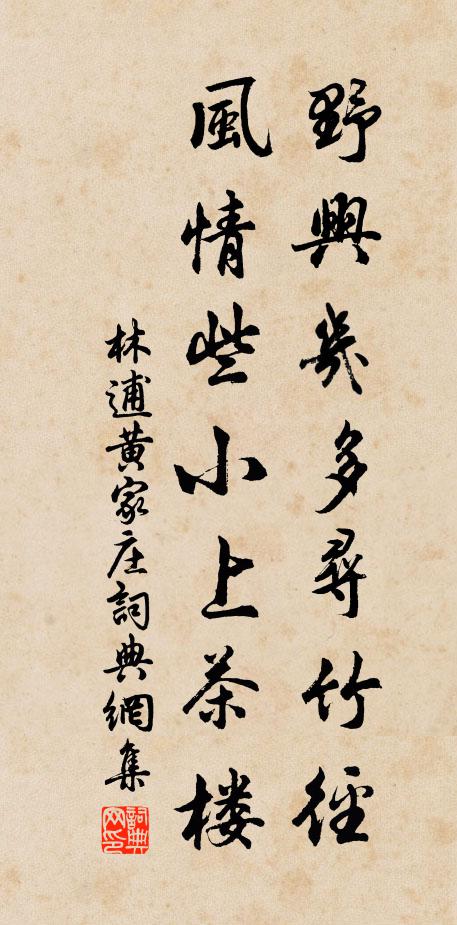 野興幾多尋竹徑
風情些小上茶楼
林逋黄家庄詞典網集
詞典网印